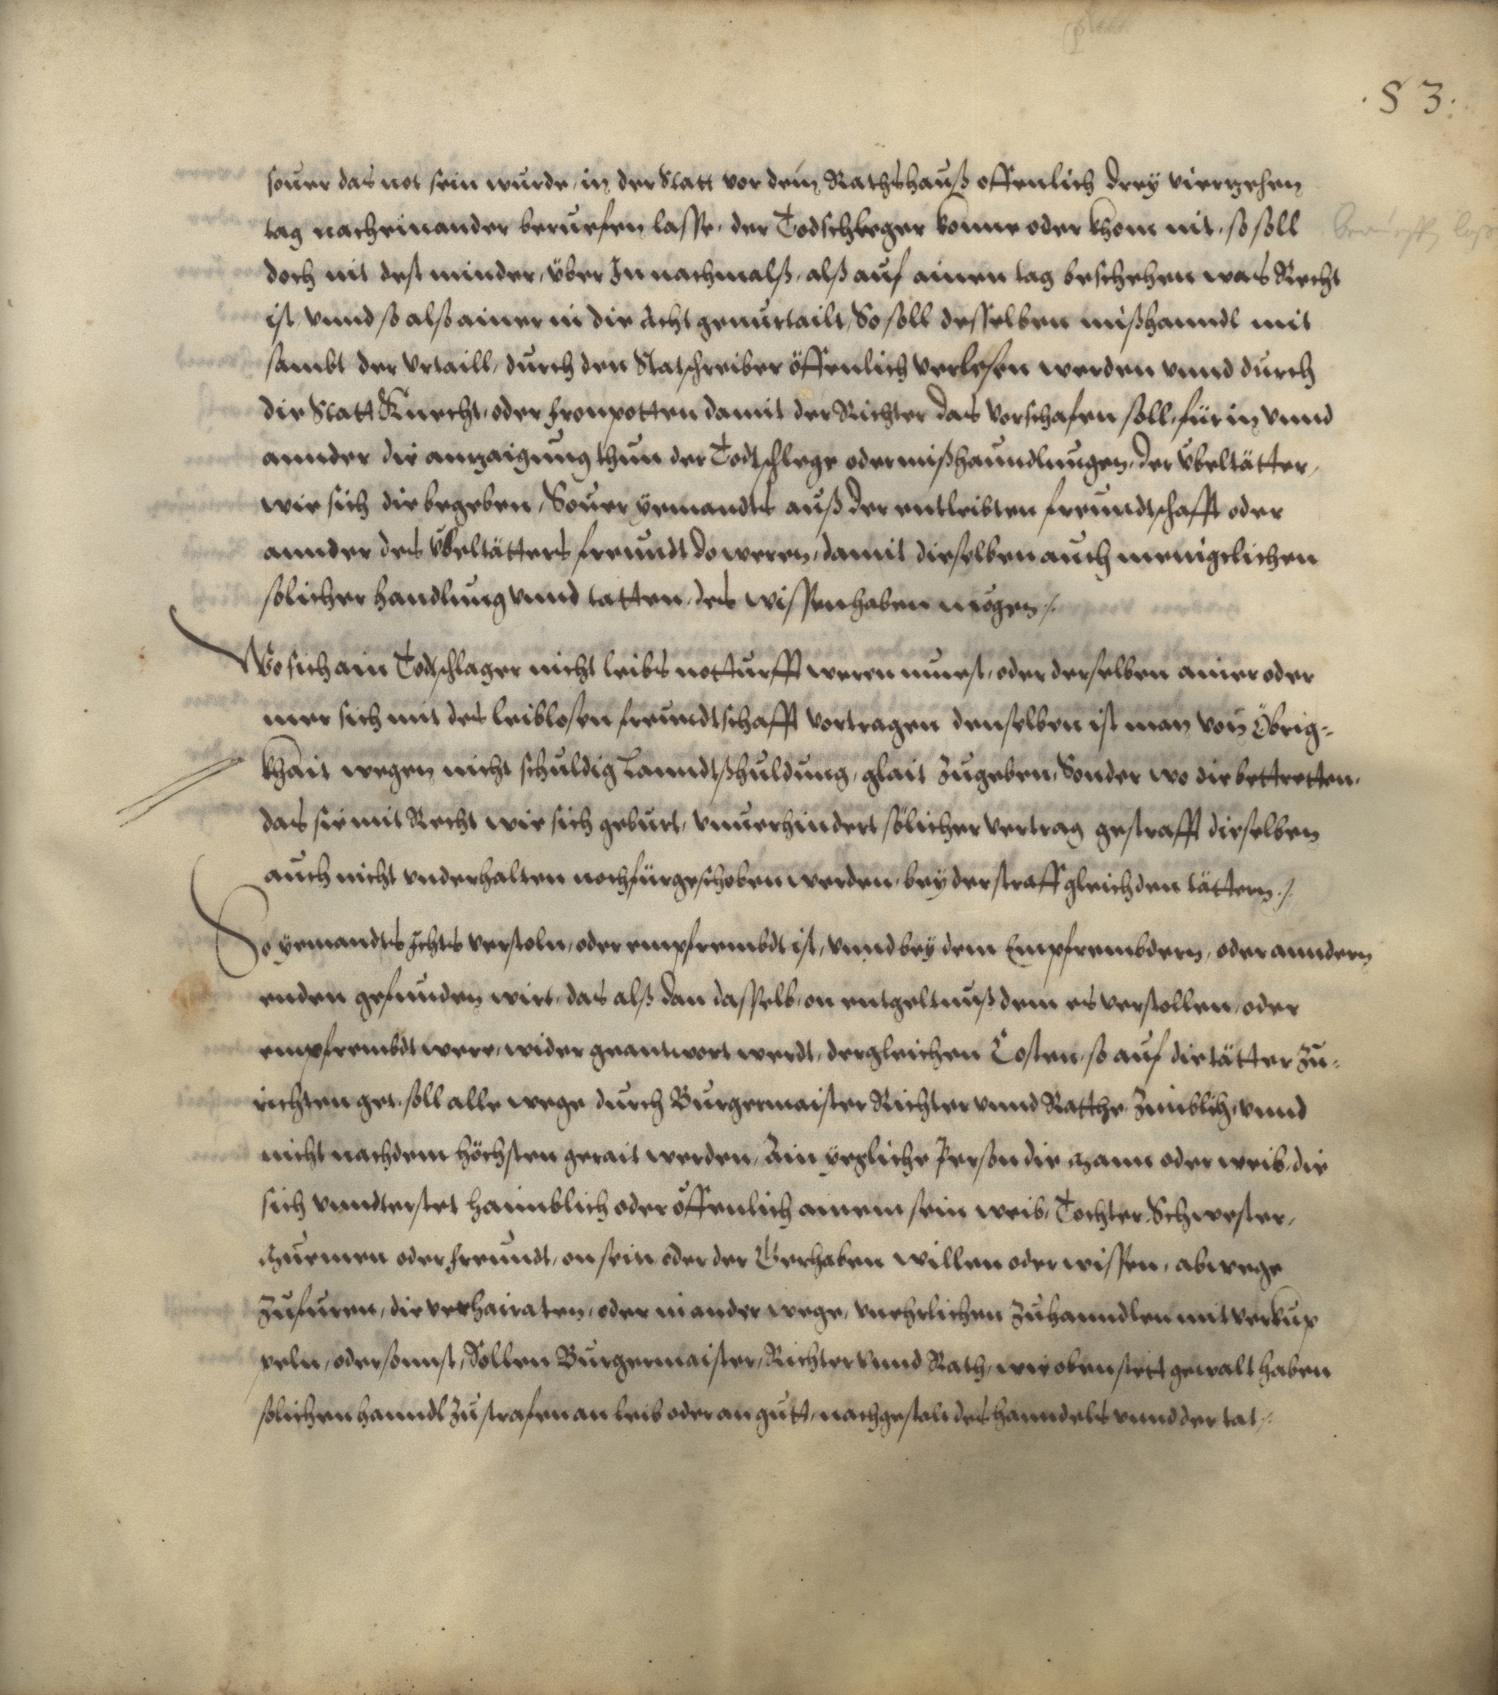 .83.
souer das not sein wurde, in der Statt vor dem Rathshauß offenlich drey viertzehen
tag nacheinander berueffen lasse, der Todschleger komme oder khom nit, so soll
doch nit dest minder, über In nachmalß, alß auf ainen tag beschehen was Recht
ist, vnnd so also ainer in die Acht geurtailt, So soll desselben mißhanndl mit
sambt der vrtaill, durch den Statschreiber öffenlich verlesen werden vnnd durch
die Statt Knecht, oder fronpotten damit der Richter das vorschafen soll, für in vnnd
annder die anzaigung thun der Todtschlege oder mißhanndlungen, der übeltätter,
wie sich die begeben, Souer yemandts auß der entleibten freundtschafft oder
annder des übeltätters freundt do weren, damit dieselben auch menigclichen
solicher handlung vnnd tatten, des wissen haben mögen /.
Wo sich ain Todschlager nicht leibs notturfft weren muest, oder derselben ainer oder
mer sich mit des leiblosen freundtschafft vortragen denselben ist man von Öbrig-
khait wegen nicht schuldig Lanndtßhuldung, glait zugeben, Sonder wo die bettretten,
das sie mit Recht wie sich geburt, vnuerhindert sölicher vertrag gestrafft dieselben
auch nicht vnderhalten noch fürgeschoben werden, bey der straff gleich den tättern ./.
So yemandts ichts verstoln, oder empfrembdt ist, vnnd bey dem Empfrembdern, oder anndern
enden gefunden wirt, das alß dan dasselb, on entgeltnuß dem es verstollen, oder
empfrembdt were, wider geantwort werdt, dergleichen Costen, so auf die tätter zu-
richten get, soll alle wege durch Burgermaister Richter vnnd Ratthe zimblich, vnnd
nicht nach dem höchsten gerait werden, Ain yegliche Person die mann oder weib, die
sich vnndterstet haimblich oder öffenlich ainem sein weib, Tochter, Schwester,
Muemen oder freundt, on sein oder der Gerhaben willen oder wissen, abwege
zufuren, die verhairaten, oder in ander wege, vnehrlichen zuhanndlen mit verkup
peln, oder sonnst, Sollen Burgermaister, Richter vnnd Rath, wie oben stett gewalt haben
solichen hanndl zustrafen an leib oder an gutt, nach gestalt des hanndels vnnd der tat /.